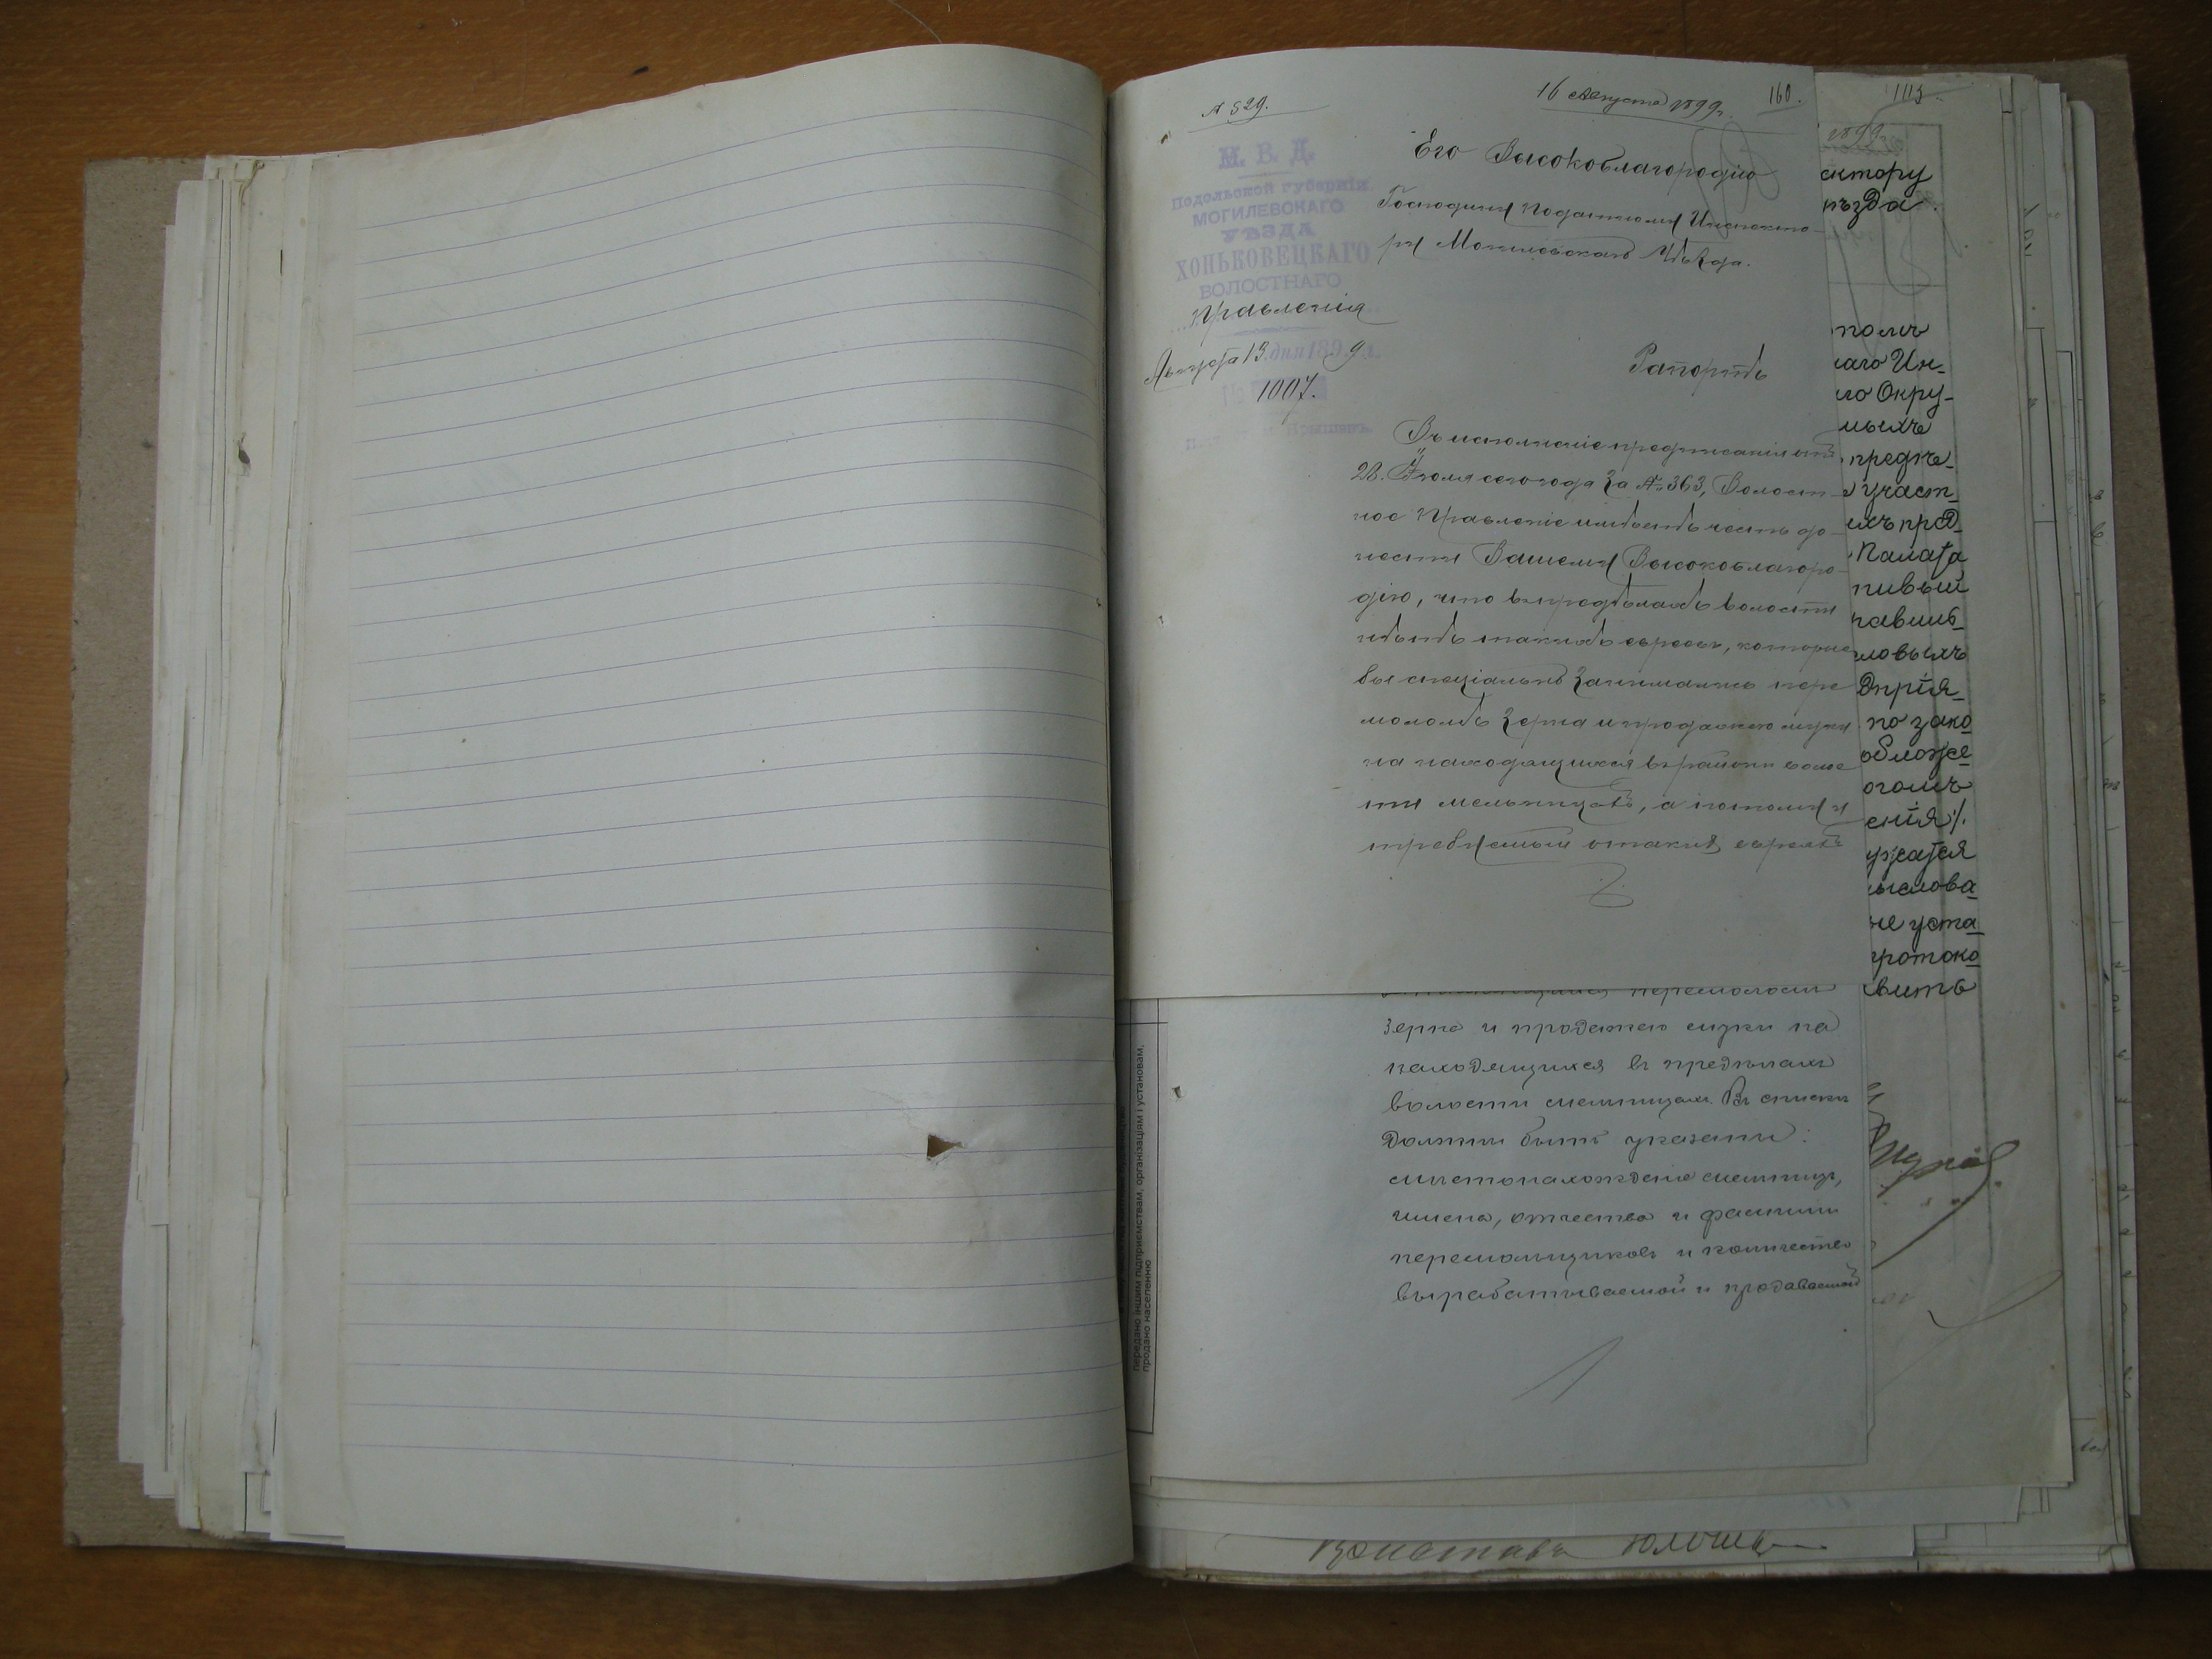 № 529.
16 Августа 1899 г.
160.
М. В. Д.
Подольской губерніи
МОГИЛЕВСКАГО
УѢЗДА
ХОНЬКОВЕЦКАГО
ВОЛОСТНАГО
Правленія
Августа 13 дня 1899 г.
№ 1007.
Его Высокоблагородію
Господину Податному Инспекто-
ру Могилевскаго Уѣзда.
Рапортъ
Въ исполненіе предписанія отъ
28 Іюля сего года за № 363, Волост-
ное Правленіе имѣетъ честь до-
нести Вашему Высокоблагоро-
дію, что въ предѣлахъ волости
нѣтъ такихъ евреевъ, которые
бы спеціально занимались пере
моломъ зерна и продажею муки
на находящихся въ районѣ волос
ти мельницахъ, а потому и
требуемый о такихъ евреяхъ
зерна и продажею муки на
находящихся въ предѣлахъ
волости мельницахъ. Въ списки
должны быть указаны:
мѣстонахожденіе мельницъ,
имена, отчества и фамиліи
перемольщиковъ и количество
вырабатываемой и продаваемой
103
1899
ектору
ѣзда.
аго Ин-
го Окру-
мыхъ
предпе-
участ-
ихъ пред-
Палата
ловыхъ
дпрія-
по зако
обложе
огомъ
енія
уста
протоко
вить
передано іншим підприємствам, організаціям і установам,
продано населенню